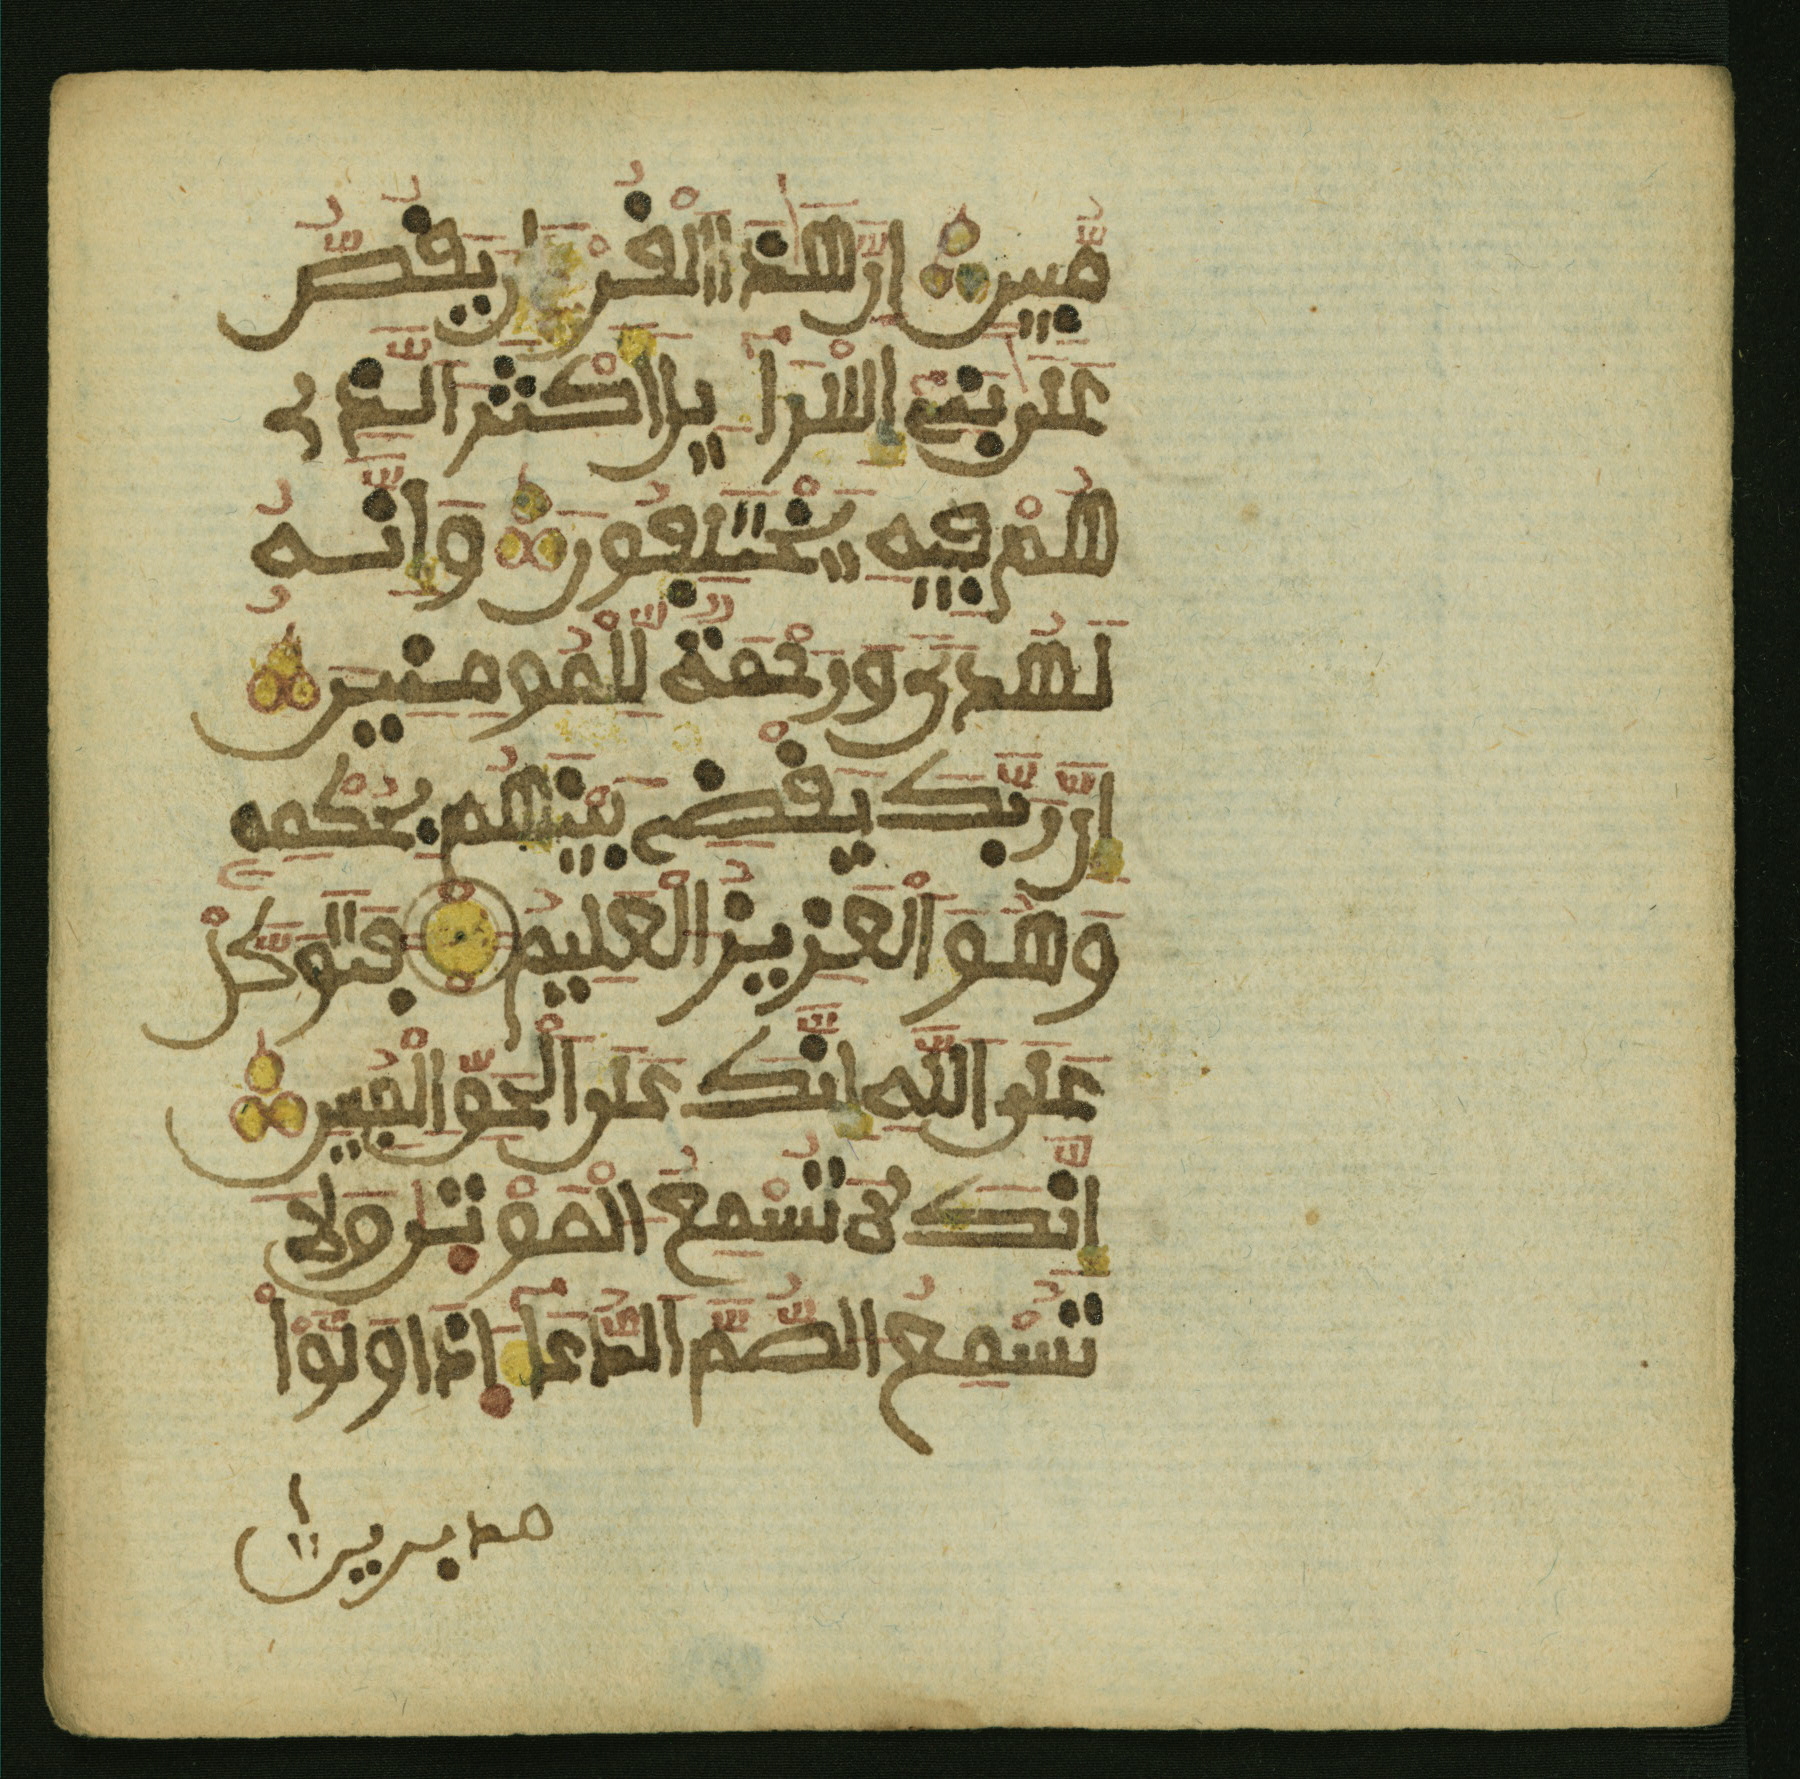 مُّبِينٍ إِنَّ هَٰذَا اَلْقُرْءَانَ يَقُصُّ
عَلَىٰ بَنِىٓ إِسْرَآءِيلَ أَكْثَرَ اَلَّذِى
هُمْ فِيهِ يَخْتَلِفُونَ وَإِنَّهُ
لَهُدًى وَرَحْمَةٌ لِّلْمُومِنِينَ
إِنَّ رَبَّكَ يَقْضِى بَيْنَهُم بِحُكْمِهِ
وَهُوَ اَلْعَزِيزُ اَلْعَلِيمُ فَتَوَكَّلْ
عَلَى اَللَّهِ إِنَّكَ عَلَى اَلْحَقِّ اِلْمُبِينِ
إِنَّكَ لَا تُسْمِعُ اُلْمَوْتَىٰ وَلَا
تُسْمِعُ اُلصُّمَّ اَلدُّعَآءَ اِذَا وَلَّوْاْ
مدبرين